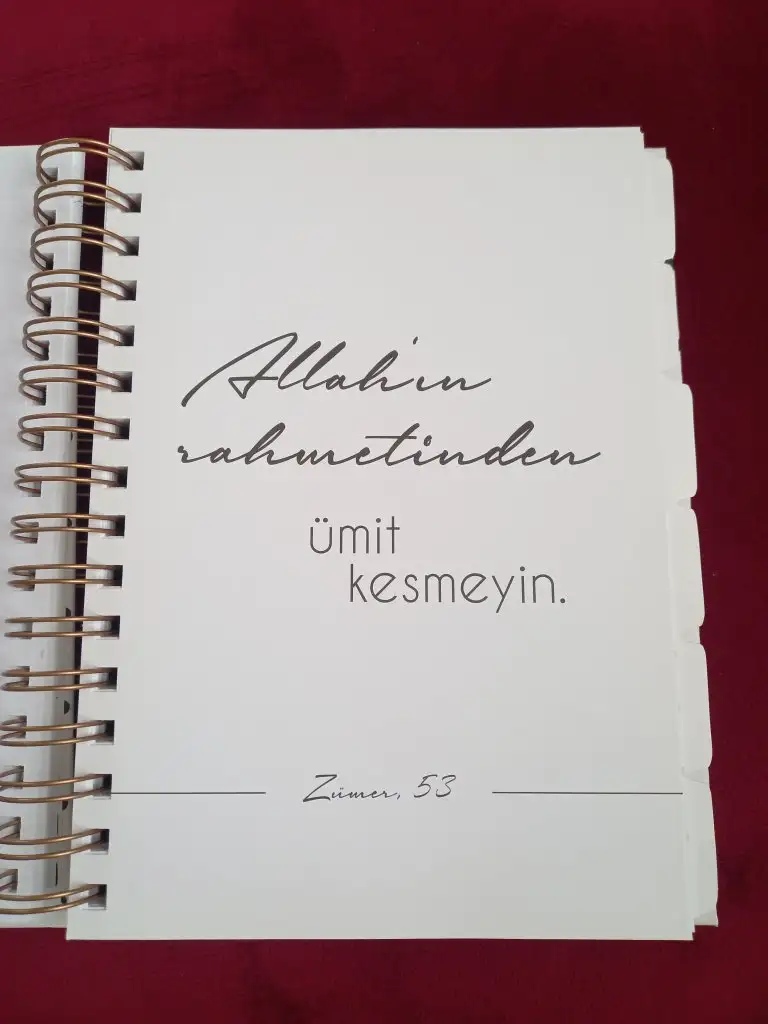 Allah'ın
rahmetinden
ümit
kesmeyin.
Zümer, 53